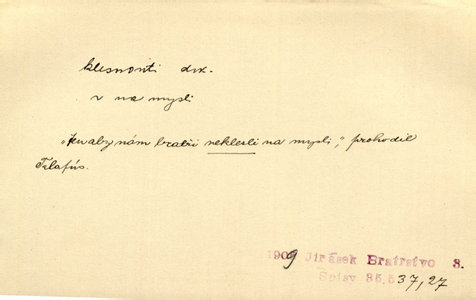 klesnouti dok.
v na mysli
„Jen aby nám bratři neklesli na mysli,“ prohodil
Talafús.
1909 Jirásek Bratrstvo 3.
Spisy 35,537,27